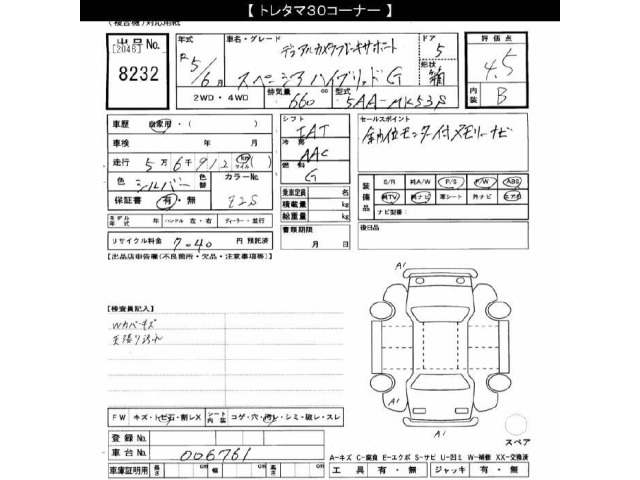 【 トレタマ30コーナー 】
(複合機)対応用紙
出品No.
[2046]
8232
年式
R5/6月
車名・グレード
デュアルカメラブレーキサポート
スペーシア ハイブリッド G
ドア
5
形状
箱
評価点
4.5
内装
B
2WD・4WD
排気量
660
cc
型式
5AA-MK53S
車歴
自家用・( )
車検
年 月
走行
5万6千912
km
マイル
( )
色
シルバー
色替
カラーNo.
Z2S
保証書
有・無
モデル年式
年
ハンドル 左・右
ディーラー・並行
リサイクル料金
7040
円 預託済
シフト
IAT
冷房
AAC
燃料
G
乗車定員
名
積載量
kg
総重量
kg
書類期限
月 日
セールスポイント
全方位モニター付メモリーナビ
装備品
S/R
純A/W
P/S
P/W
ABS
純TV
純ナビ
革シート
外ナビ
エアB
ナビ型番:
後日品
【出品店申告欄(不良箇所・欠品・注意事項等)】
【検査員記入】
Wカバーキズ
天張り汚れ
A1
A1
A1
A1
スペア
FW
キズ・トビ石・割レX
シート内装
コゲ・穴・汚レ・シミ・破レ・スレ
登録No.
車台No.
006761
車庫証明用
長さ
cm
幅
cm
高さ
cm
A-キズ C-腐食 E-エクボ S-サビ U-凹ミ W-補修 XX-交換済
工具
有・無
ジャッキ
有・無